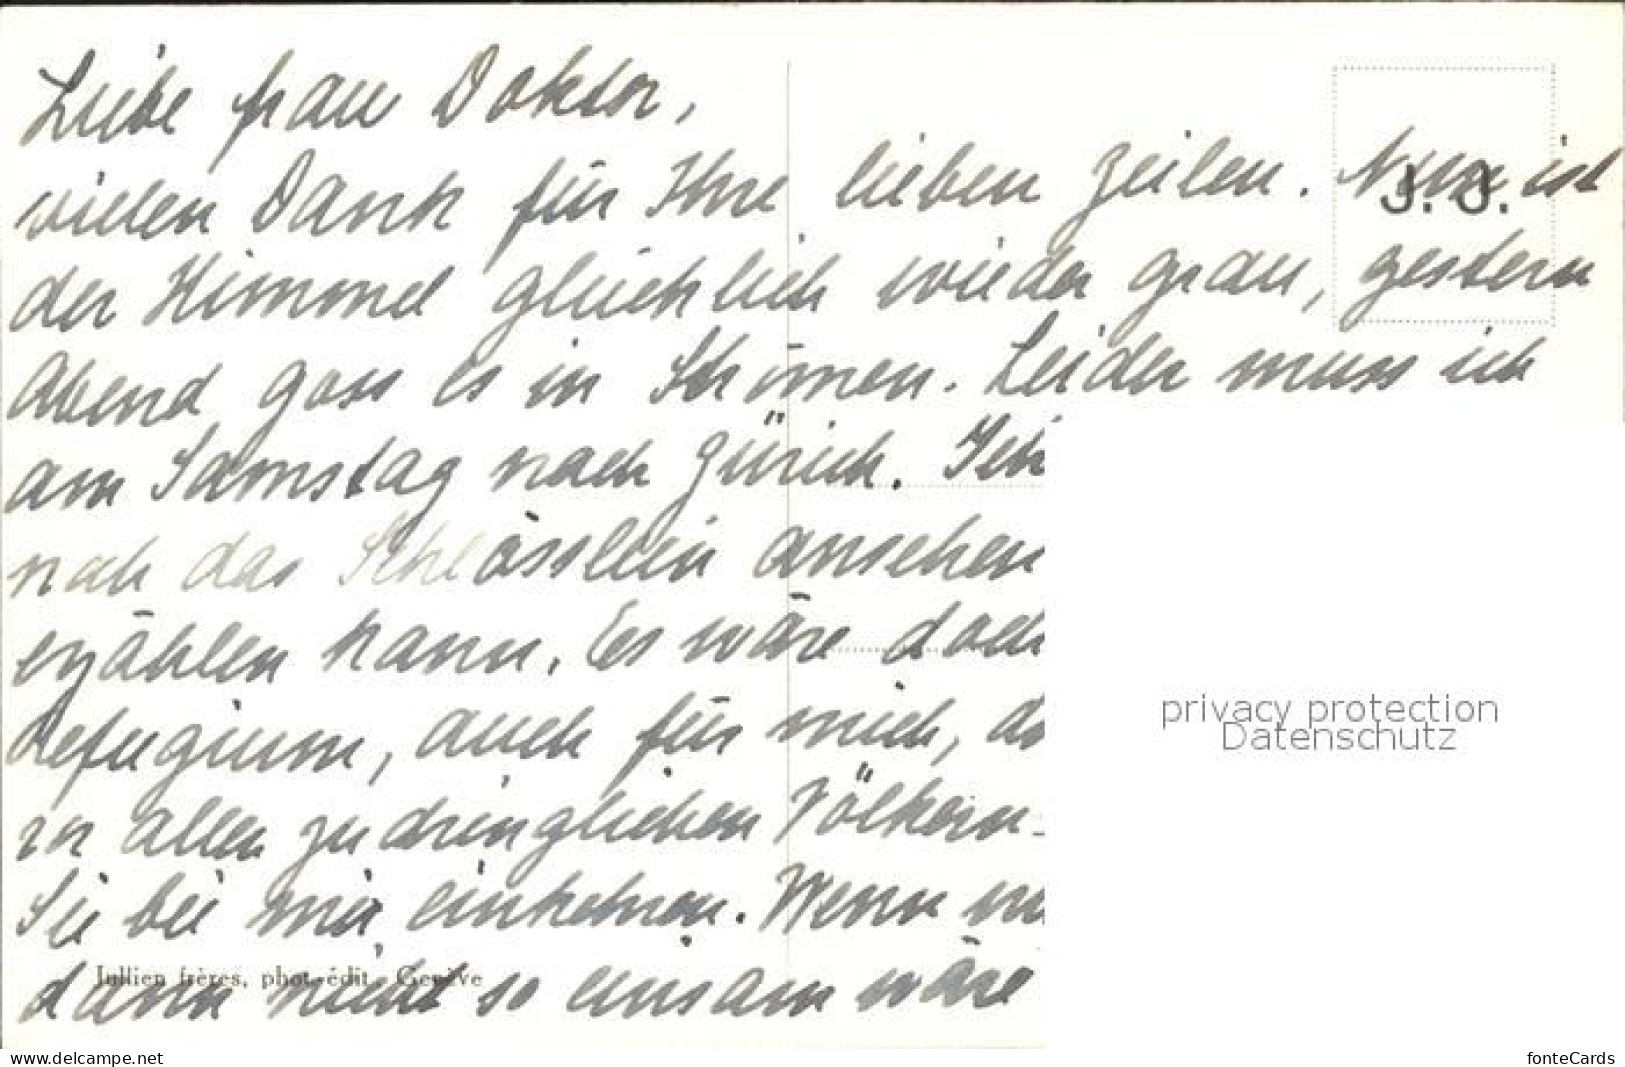 Liebe Frau Doktor,
vielen Dank für Ihre lieben Zeilen. Nun ist
der Himmel glücklich wieder grau, gestern
Abend goss es in Strömen. Leider muss ich
am Samstag nach Zürich. Ich
noch das Schlösslein ansehen
erzählen kann. Es wäre doch
Refugium, auch für mich, da
vor allen zudringlichen Völkern-
Sie bei mir einkehren. Wenn
dann nicht so einsam wäre
J. J.
Jullien frères, phot.-édit., Genève
privacy protection
Datenschutz
www.delcampe.net
fonteCards